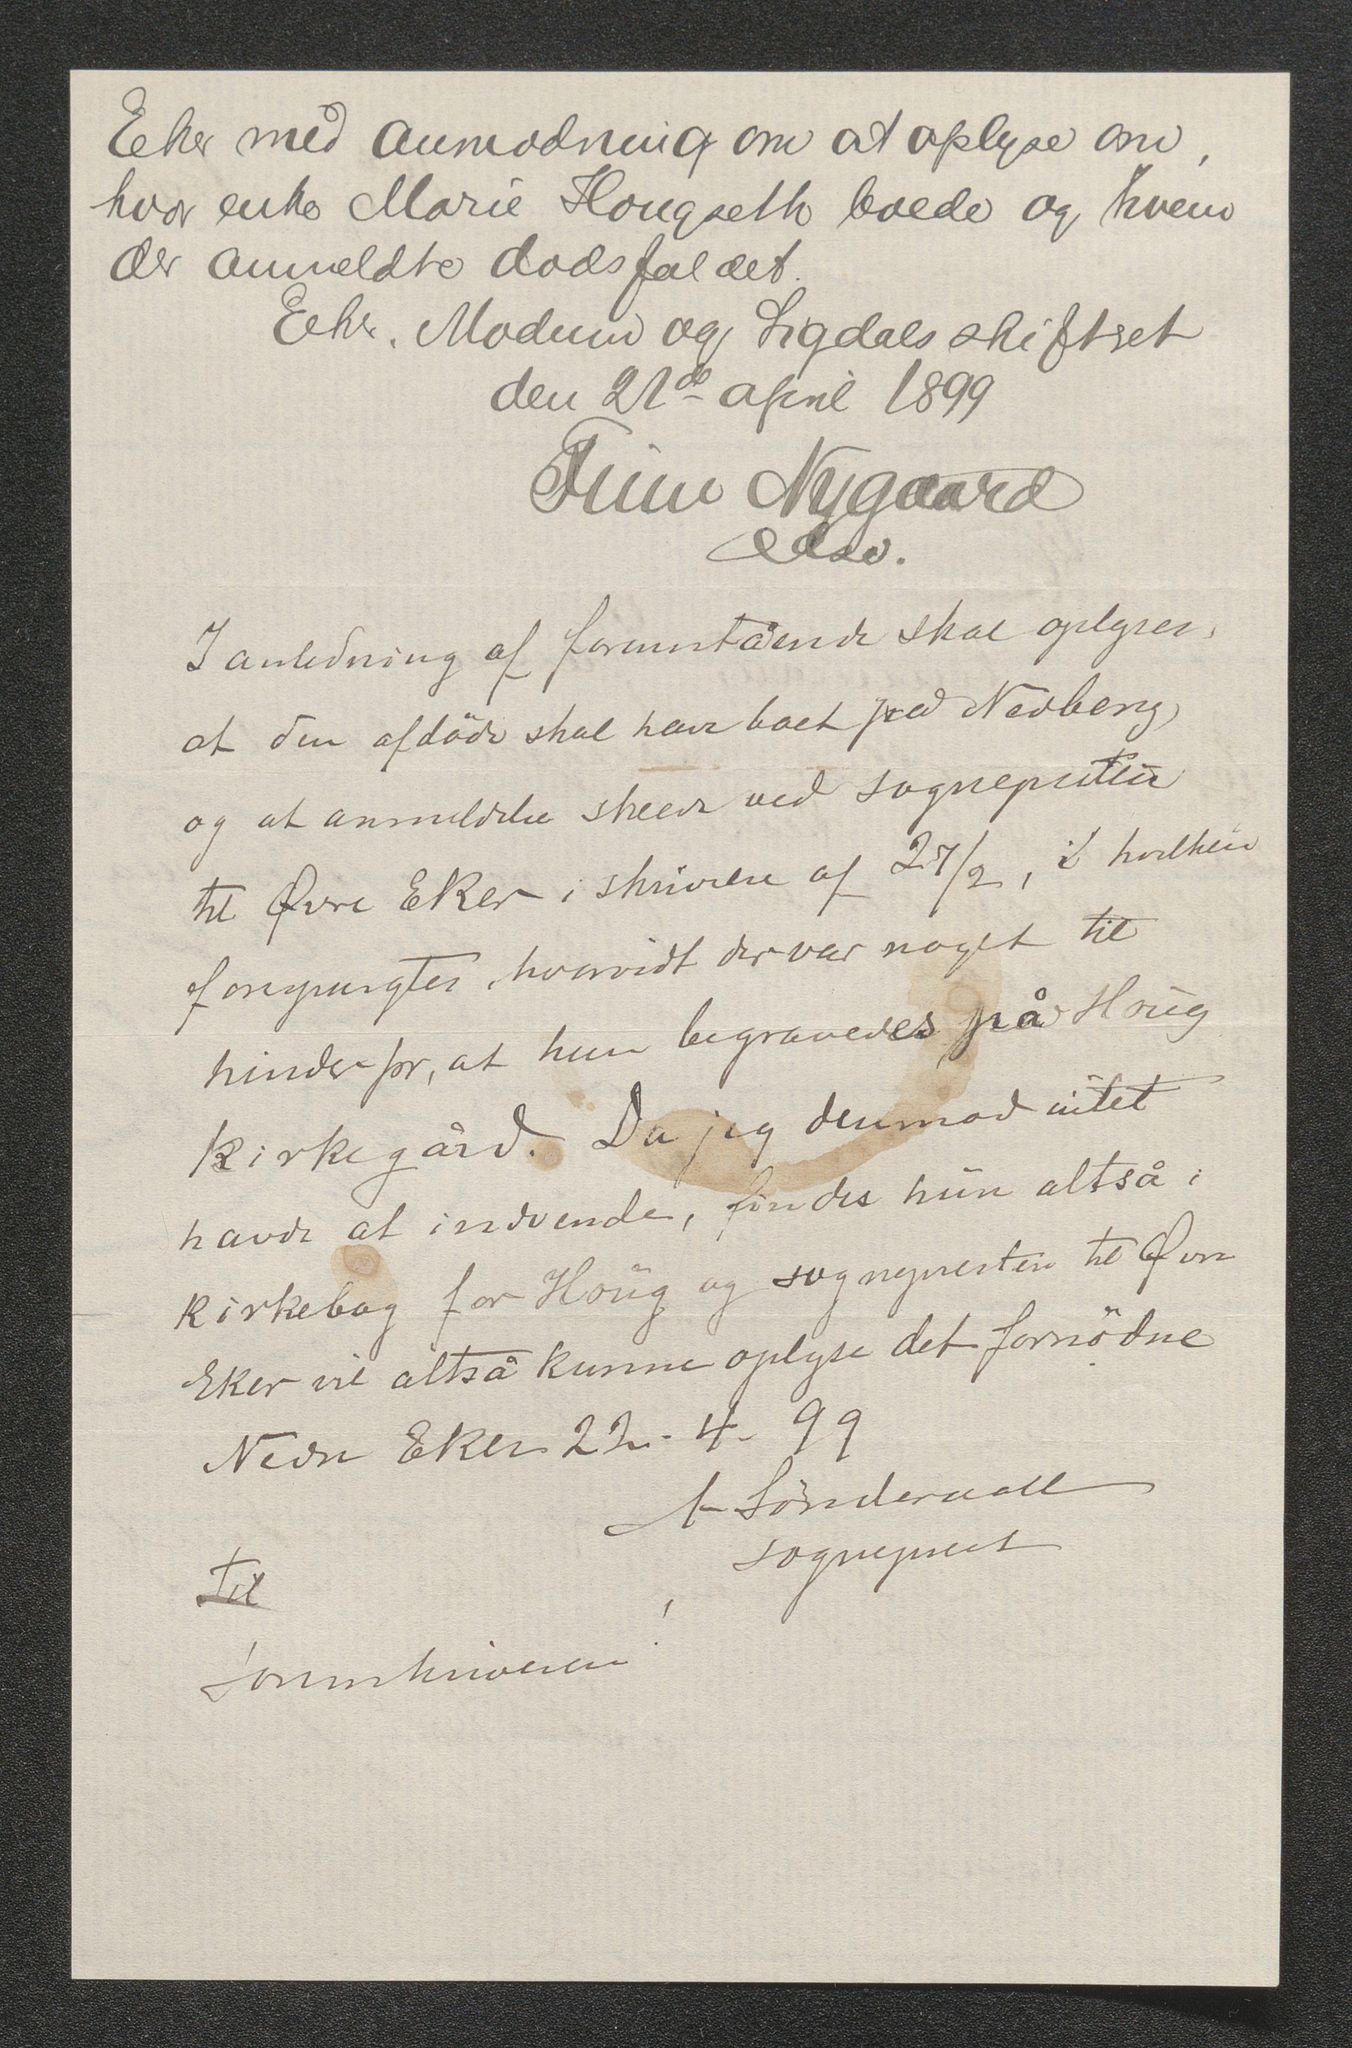 Eker med anmodning om at oplyse om,
hvor enke Marie Hougseth boede og hvem
der anmeldte dødsfaldet.
Eker, Modum og Sigdals skifteret
den 21de april 1899
Nygaard
I anledning af foranstående skal oplyses,
at den afdöde skal have boet på Nedberg,
og at anmeldelse skede ved sognepresten
til Øvre Eker i skrivelse af 27/2, i hvilken
forespurgtes, hvorvidt der var noget til
hinder for, at hun begravedes på Houg
kirkegård. Da jeg derimod intet
havde at indvende, findes hun altså i
kirkebog for Houg og sognepresten til Øvre
Eker vil altså kunne oplyse det fornödne
Nedre Eker 22-4-99
A Sönderaall
sogneprest
Til
Sorenskriveren